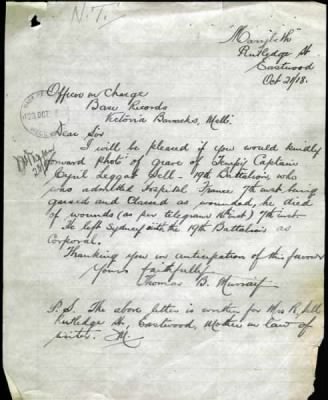 N.T.
"Marybeth"
Rutledge St
Eastwood
Oct 20/18.
Officer in Charge
Base Records
Victoria Barracks, Melb.
Dear Sir
I will be pleased if you would kindly
forward photo of grave of Temp'y Captain
Cyril Leggat Sell - 19th Battalion, who
was admitted Hospital France 7th inst being
gassed and Classed as wounded, he died
of wounds (as per telegram 7th inst
He left Sydney with the 19th Battalion as
Corporal.
Thanking you in anticipation of this favour
Yours faithfully
Thomas B. Murray
P.S. The above letter is written for Mrs R. Sell
Rutledge St, Eastwood, Mother in law of
writer. M.